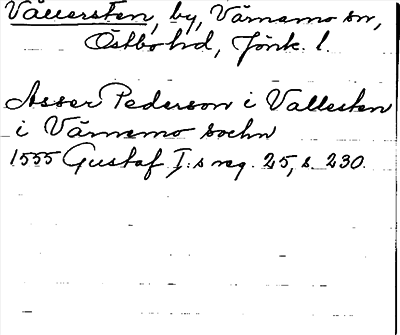 Vållersten, by, Värnamo sn,
Östbo hd, Jönk. l.
Asser Pederson i Vallesten
i Värnemo sochn
1555 Gustaf I:s reg. 25, s. 230.